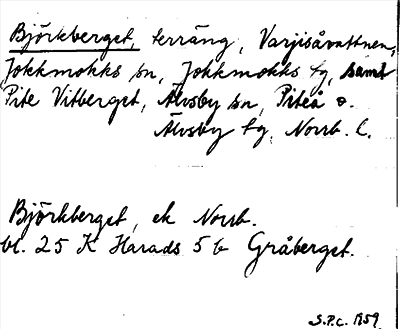 Björkberget, terräng, Varjisåvattnen,
Jokkmokks sn, Jokkmokks tg, samt
Pite Vitberget, Älvsby sn, Piteå o.
Älvsby tg, Norrb. l.
Björkberget, ek Norrb.
bl. 25 K Harads 5 b Gråberget.
S.P.C. 1959